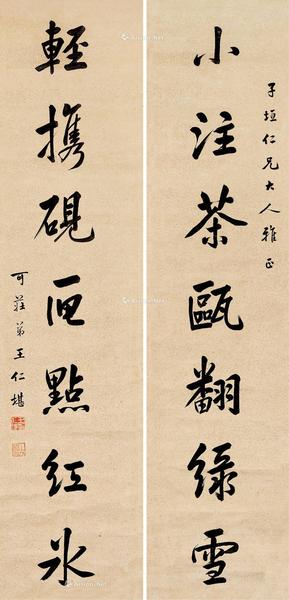 子垣仁兄大人雅正
小注茶甌翻綠雪
輕攜硯匣點紅冰
可莊弟王仁堪